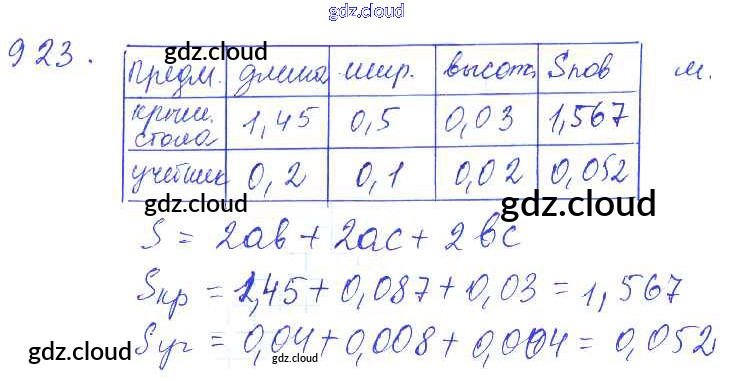 gdz.cloud
923.
Предм. длина шир. высота Sпов м.
крыш. стола 1,45 0,5 0,03 1,567
учебник 0,2 0,1 0,02 0,052
gdz.cloud
gdz.cloud
gdz.cloud
gdz.cloud
S = 2ab + 2ac + 2bc
Sкр = 1,45 + 0,087 + 0,03 = 1,567
Sуч = 0,04 + 0,008 + 0,004 = 0,052
gdz.cloud
gdz.cloud